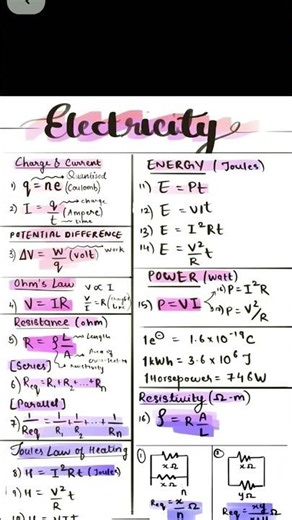 Electricity
Charge & Current
Quantised
1) q = ne (Coulomb)
2) I = q/t (Ampere)
charge
time
POTENTIAL DIFFERENCE
3) ΔV = W/q (volt)
work
Ohm's Law V ∝ I
4) V = IR
Resistance (ohm)
5) R = ρ L/A
Length
Area of
Resistivity
[Series]
6) Req = R₁+R₂+...+Rn
[Parallel]
7) 1/Req = 1/R₁ + 1/R₂ + ... + 1/Rn
Joules Law of Heating
8) H = I²Rt (Joules)
9) H = V²/R t
10) H = VIt
ENERGY (Joules)
11) E = Pt
12) E = VIt
13) E = I²Rt
14) E = V²/R t
POWER (Watt)
15) P = VI
P = I²R
P = V²/R
1e⊖ = 1.6×10⁻¹⁹C
1kWh = 3.6×10⁶ J
1Horsepower = 746W
Resistivity (Ω-m)
16) ρ = R A/L
①
xΩ
xΩ
n
Req = x/n Ω
②
xΩ
yΩ
Req = xy/